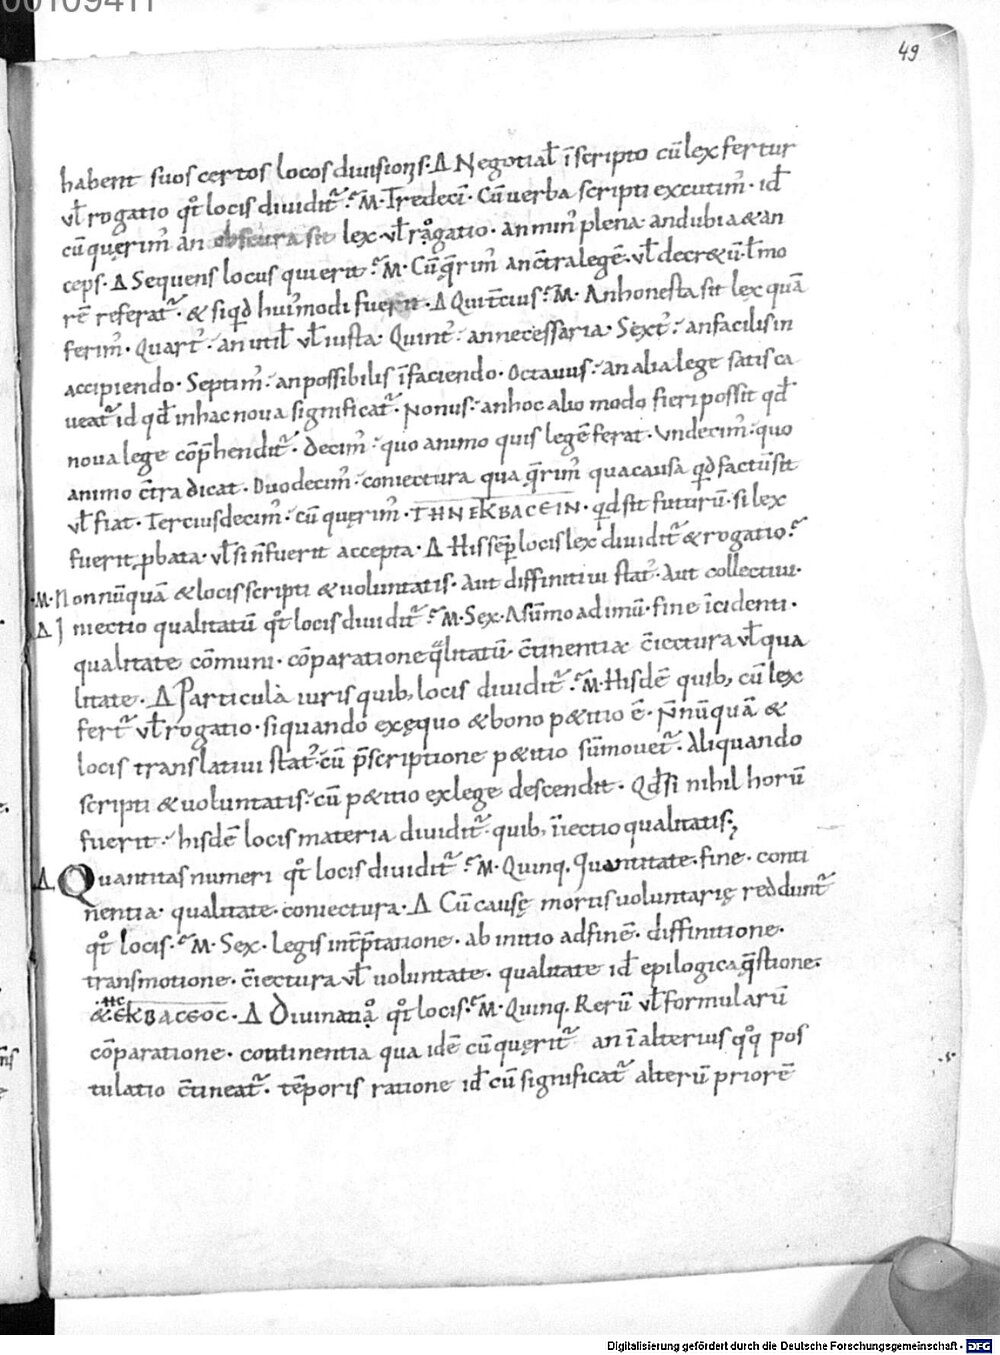 00109411
49
habent suos certos locos diuisionis·Δ Negotial̄ ī scripto cū lex fertur
ul̄ rogatio qt̊ locis diuidit᷑·M· Tredeci᷑· Cū uerba scripti excutim᷒· id̄
cū quęrim᷒ an obscura sit lex· ul̄ rogatio· an min᷒ plena· an dubia & an
ceps· Δ Sequens locus qui erit· M· Cū q̄rim᷒ an c̄tra legē· ul̄ decr&ū· l̄ mo
rē referat᷑· & siqd huim̊odi fuerit· Δ Qui t̄cius· M· An honesta sit lex quā
ferim᷒· Quart᷒· an util̄ ul̄ iusta· Quint᷒· an necessaria· Sext᷒· an facilis in
accipiendo· Septim᷒· an possibilis ī faciendo· Octauus· an alia lege satis ca
ueat᷑ id qd̄ in hac noua significat᷑· Nonus· an hoc alio modo fieri possit qd̄
noua lege cōp̄hendit᷑· Decim᷒· quo animo quis legē ferat· Undecim᷒· quo
animo c̄tradicat· Duodecim᷒· coniectura qua q̄rim᷒ qua causa qd factū sit
ul̄ fiat· Terciusdecim᷒· cū quęrim᷒· ΤΗΝ ΕΚΒΑCΕΙΝ· qd sit futurū· si lex
fuerit ꝓbata· ul̄ si n̄ fuerit accepta· Δ His sēp locis lex diuidit᷑ & rogatio
·M· Non nūquā & locis scripti & uoluntatis· Aut diffinitiui stat᷒· Aut collectiui·
Δ Iniectio qualitatū qt̊ locis diuidit᷑ M· Sex· A sūmo ad imū· fine īcidenti·
qualitate cōmuni· cōparatione q̄litatū· c̄tinentia c̄iectura ul̄ qua
litate· Δ Particula iuris quib; locis diuidit᷑ M· Hisdē quib; cū lex
fert᷑ ul̄ rogatio· si quando ex ęquo & bono p&itio ē· N̄nūquā &
locis translatiui stat᷒· cū p̄scriptione p&itio sūmouet᷑· Aliquando
scripti & uoluntatis· cū p&itio ex lege descendit· Qd̄ si nihil horū
fuerit· hisdē locis materia diuidit᷑· quib; īiectio qualitatis;
Δ Quantitas numeri qt̊ locis diuidit᷑ M· Quinq· Quantitate· fine· conti
nentia· qualitate· coniectura· Δ Cū causę mortis uoluntarię reddunt᷑
qt̊ locis· M· Sex· Legis int̄p̄tatione· ab initio ad finē· diffinitione·
transmotione· c̄iectura ul̄ uoluntate· qualitate id̄ epilogica q̄stione·
& ΤΗC ΕΚΒΑCΕΟC· Δ Diuinatio qt̊ locis· M· Quinq· Rerū ul̄ formularū
cōparatione· continentia qua idē cū quęrit᷑ an ī alterius qq̊ pos
tulatio c̄tineat᷑· tēporis ratione id̄ cū significat᷑ alterū priorē
Digitalisierung gefördert durch die Deutsche Forschungsgemeinschaft - DFG